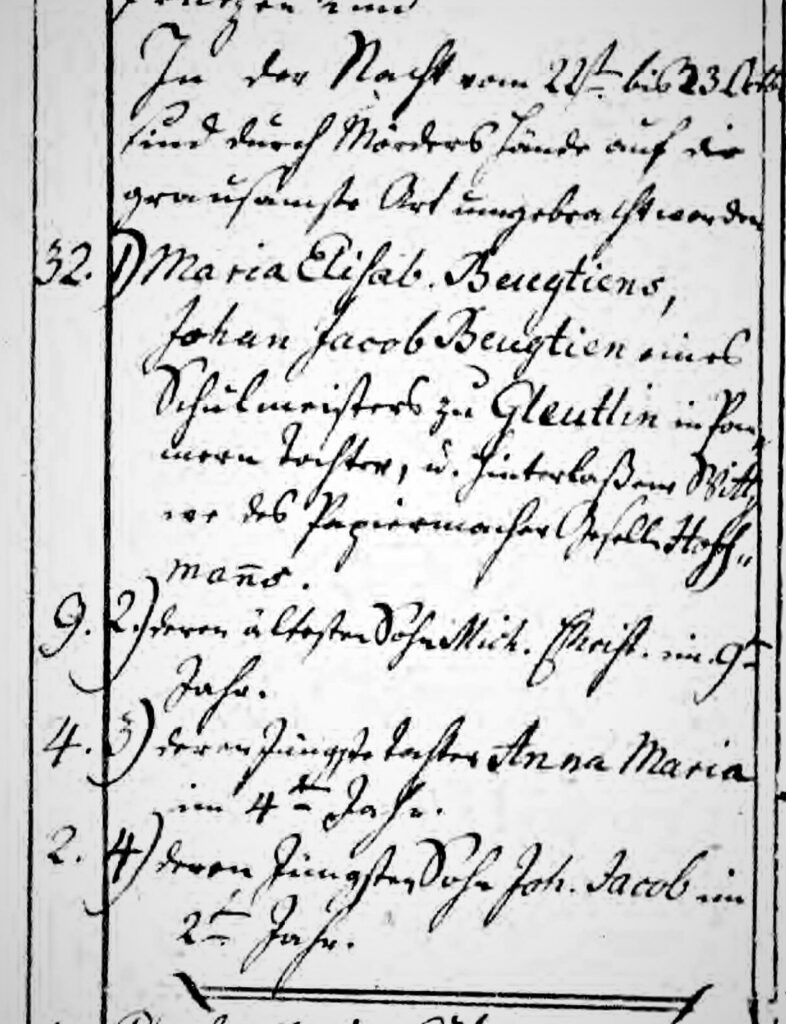 In der Nacht vom 22st bis 23 Octb
sind durch Mörders Hände auf die
grausamste Art umgebracht worden
32. 1) Maria Elisab. Beugtiens,
Johan Jacob Beugtien eines
Schulmeisters zu Gleutlin in Pom„
mern Tochter, u. hinterlaßene Witt„
we des Papiermacher Gesell Hoff„
man̄s.
9. 2.) deren ältesten Sohn Mich. Christ. im 9t
Jahr.
4. 3) deren Jüngste Tochter Anna Maria
im 4ten Jahr.
2. 4) deren Jüngsten Sohn Joh. Jacob im
2t Jahr.